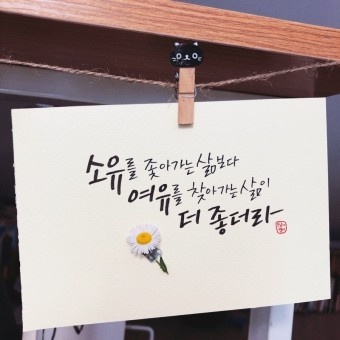 소유를 좇아가는 삶보다
여유를 찾아가는 삶이
더 좋더라